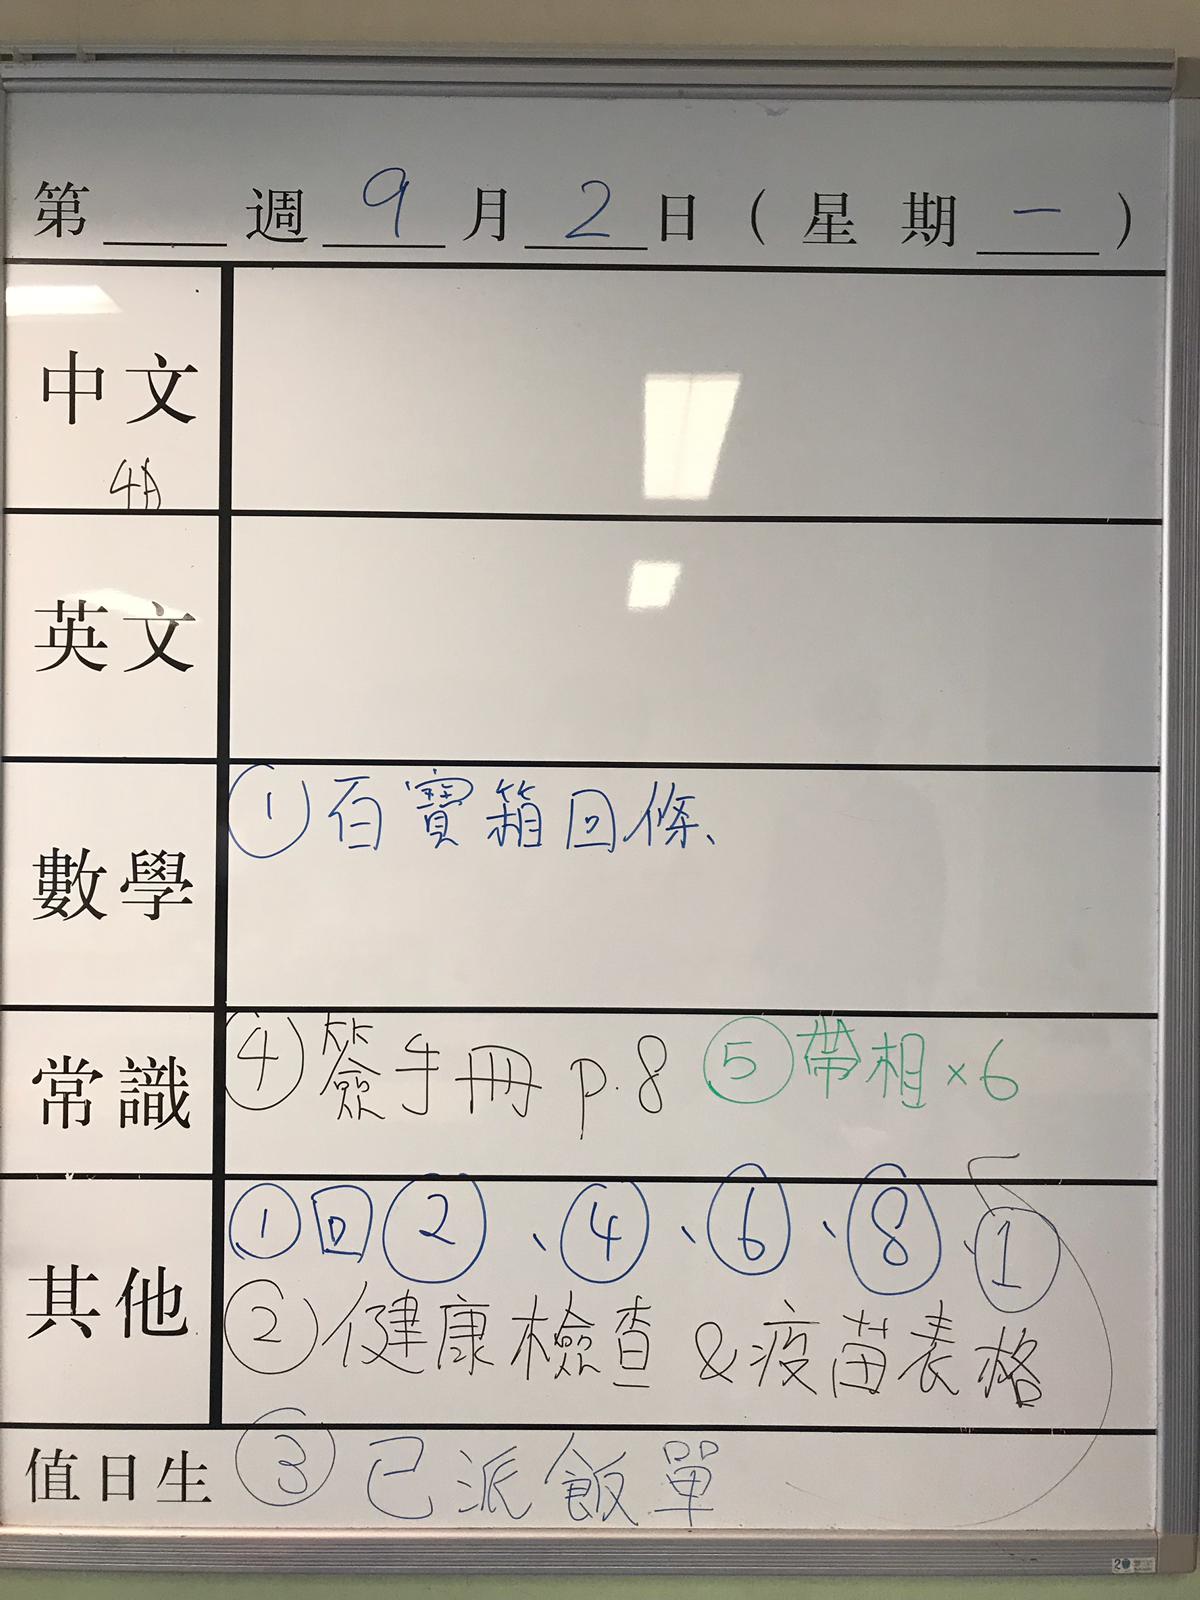 第 週 9 月 2 日 ( 星 期 一 )
中文
4A
英文
數學 ① 百寶箱回條、
常識 ④ 簽手冊 p.8 ⑤ 帶相 x 6
其他 ① 回 ② 、 ④ 、 ⑥ 、 ⑧ 、 ①
② 健康檢查 & 疫苗表格
值日生 ③ 已派飯單